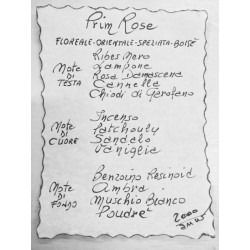 Prim Rose
FLOREALE-ORIENTALE-SPEZIATA-BOISÈ
Note di Testa
Ribes Nero
Lampone
Rosa Damascena
Cannella
Chiodi di Garofano
Note di Cuore
Incenso
Patchouly
Sandalo
Vaniglia
Note di Fondo
Benzoino Resinoid
Ambra
Muschio Bianco
Poudré
2000